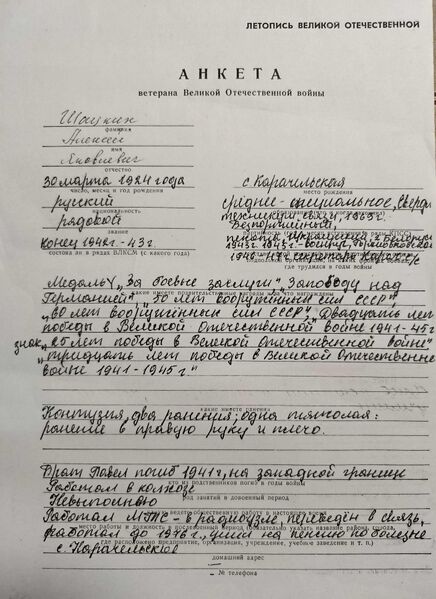 ЛЕТОПИСЬ ВЕЛИКОЙ ОТЕЧЕСТВЕННОЙ
АНКЕТА
ветерана Великой Отечественной войны
фамилия
Алексей
имя
Яковлевич
отчество
30 марта 1924 года
число, месяц и год рождения
русский
национальность
рядовой
звание
конец 1942г.-43г.
состоял ли в рядах ВЛКСМ (с какого года)
с. Карачельская
место рождения
среднее-специальное,
техникум связи, 1963г.
Беспартийный,
где трудился в годы войны
Медаль „За боевые заслуги", „За победу над
какие имеете правительственные награды
Германией", „50 лет вооружённых сил СССР",
„60 лет вооружённых сил СССР", „Двадцать лет
победы в Великой Отечественной войне 1941-45г
знак „25 лет победы в Великой Отечественной войне"
„тридцать лет победы в Великой Отечественной
войне 1941-1945г"
какие имеете ранения
Контузия, два ранения; одна тяжёлая:
ранение в правую руку и плечо.
Брат Павел погиб 1941г, на западной границе
кто из родственников погиб в годы войны
Работал в колхозе
род занятий в довоенный период
Невыполняю
ведёте общественную работу в настоящее время
Работал МТС - в радиоузле, переведён в связь,
место работы и должность в послевоенный период
работал до 1976г., ушёл на пенсию по болезне
где расположено предприятие, организация, учреждение, учебное заведение и т. п.)
с. Карачельское
домашний адрес
№ телефона